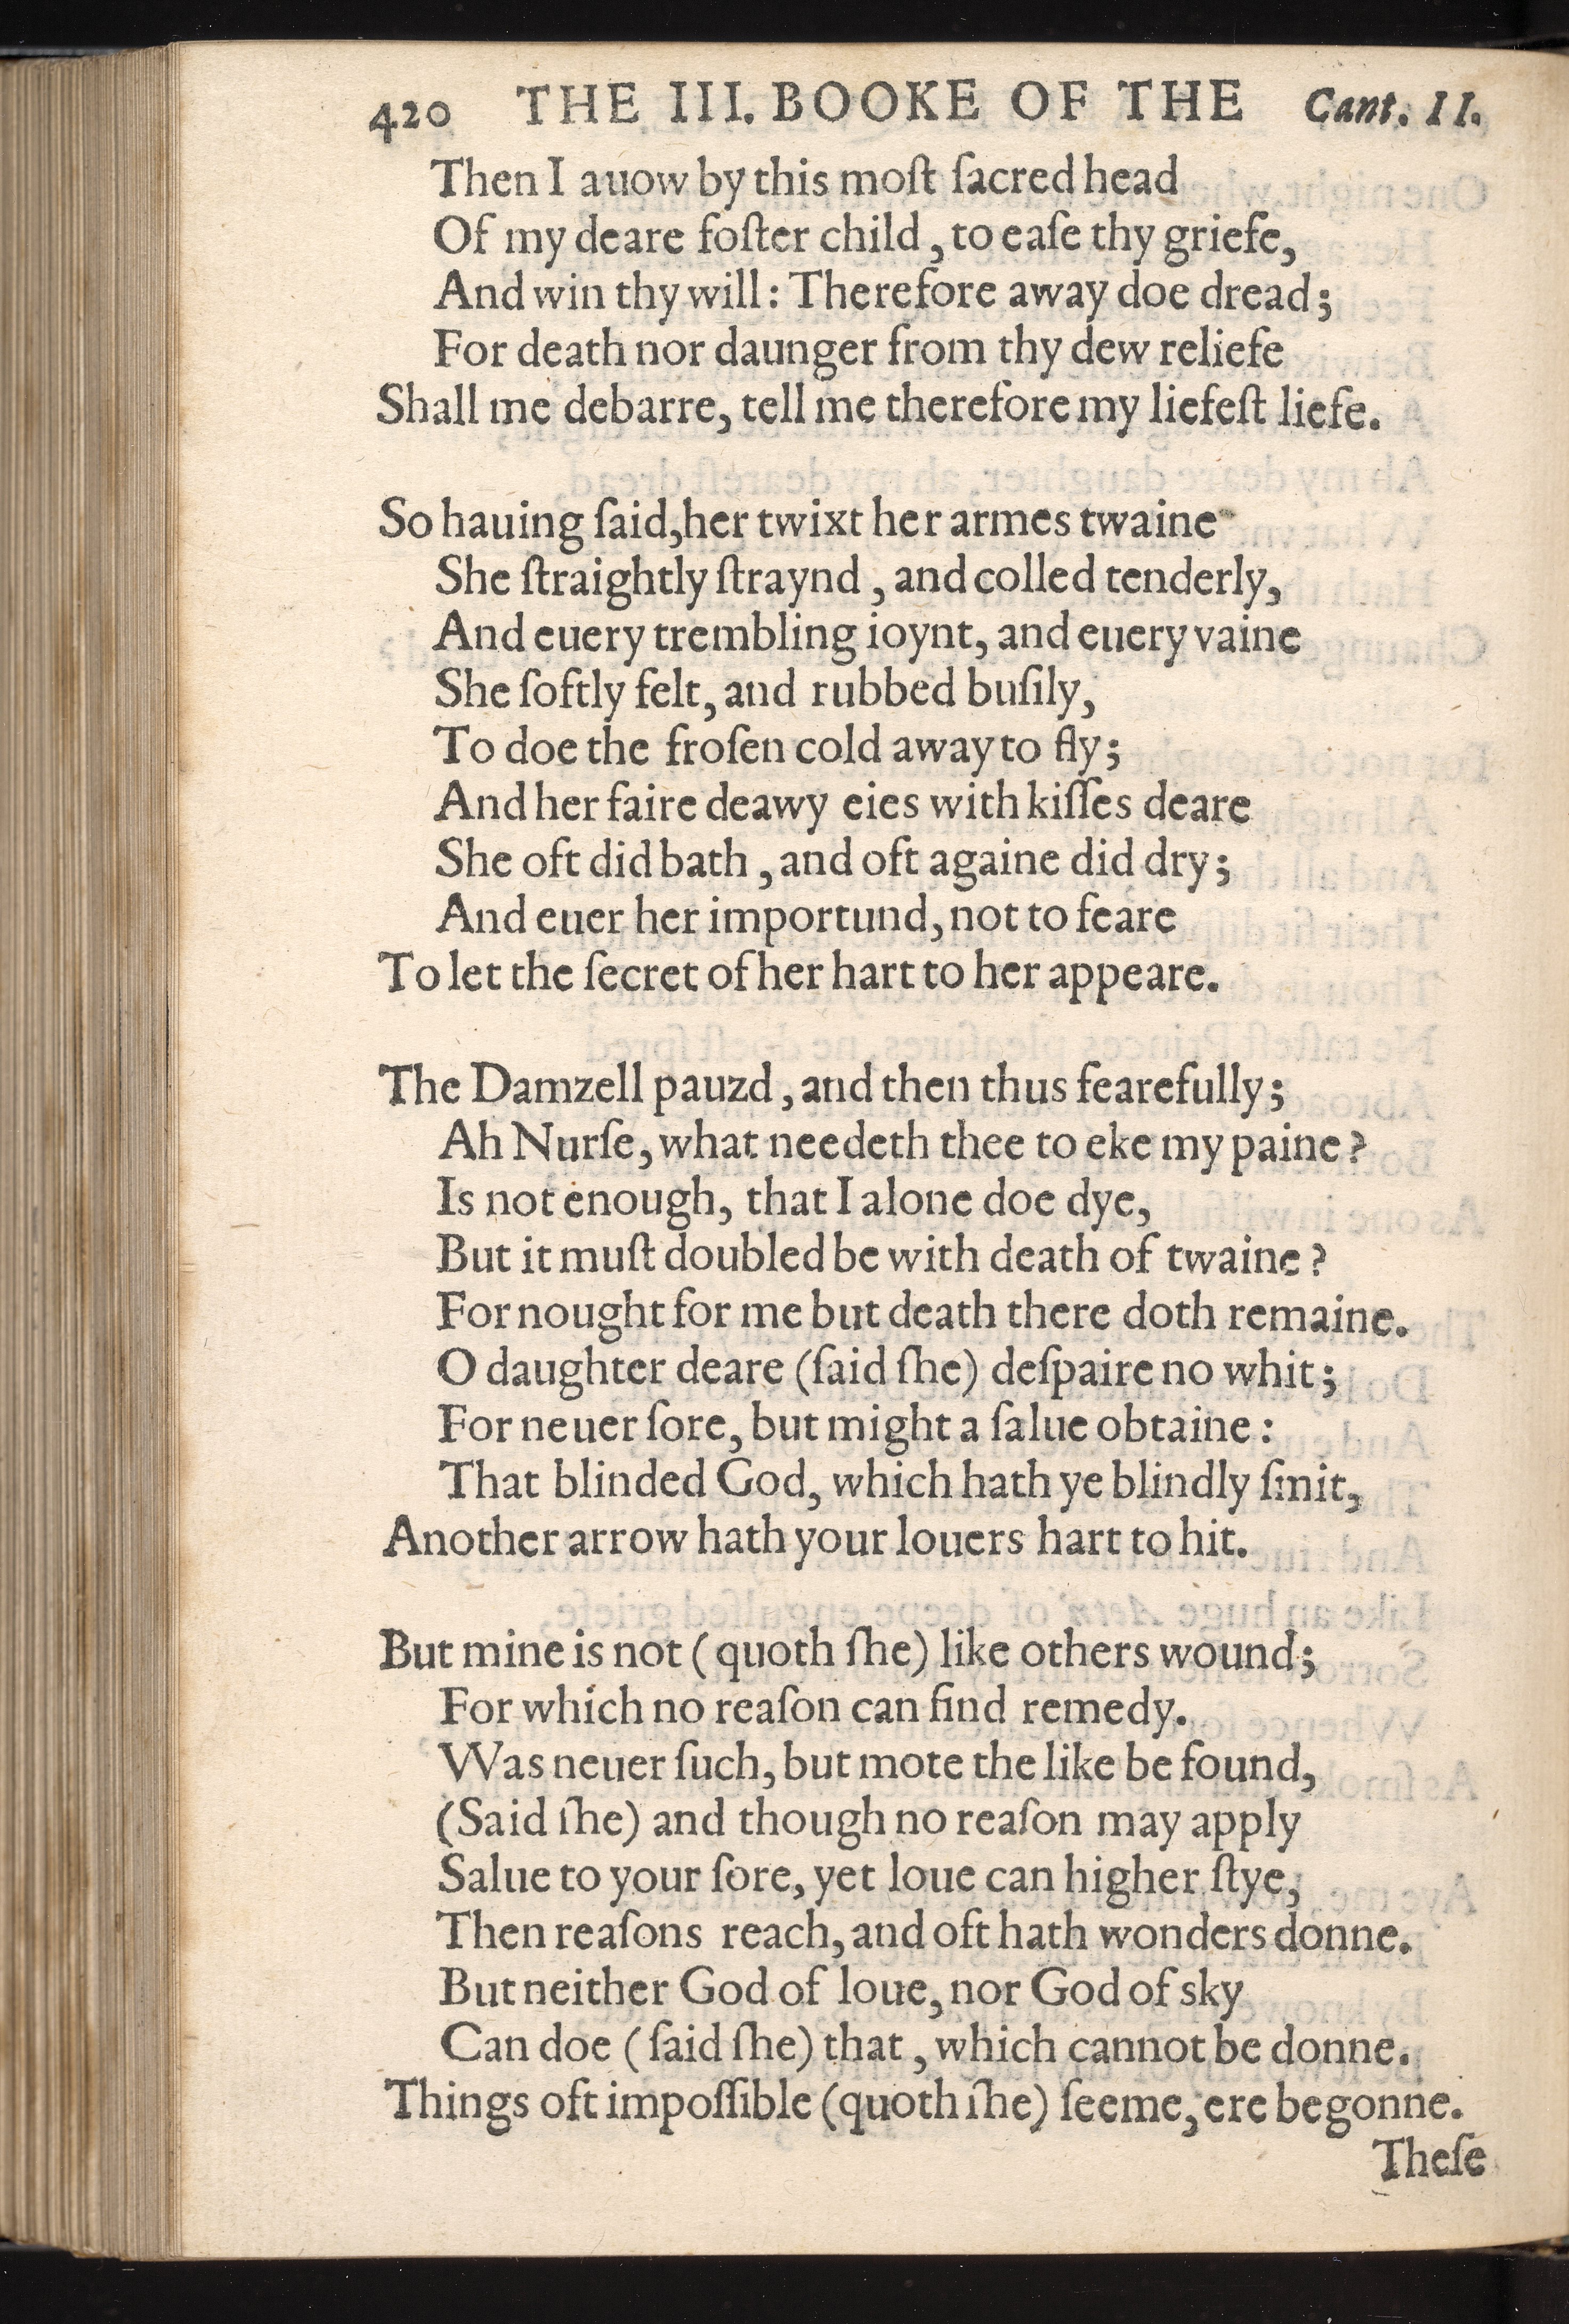 420 THE III. BOOKE OF THE Cant. II.
Then I auow by this moſt ſacred head
Of my deare foſter child, to eaſe thy griefe,
And win thy will: Therefore away doe dread;
For death nor daunger from thy dew reliefe
Shall me debarre, tell me therefore my liefeſt liefe.
So hauing ſaid, her twixt her armes twaine
She ſtraightly ſtraynd, and colled tenderly,
And euery trembling ioynt, and euery vaine
She ſoftly felt, and rubbed buſily,
To doe the froſen cold away to fly;
And her faire deawy eies with kiſſes deare
She oft did bath, and oft againe did dry;
And euer her importund, not to feare
To let the ſecret of her hart to her appeare.
The Damzell pauzd, and then thus fearefully;
Ah Nurſe, what needeth thee to eke my paine?
Is not enough, that I alone doe dye,
But it muſt doubled be with death of twaine?
For nought for me but death there doth remaine.
O daughter deare (ſaid ſhe) deſpaire no whit;
For neuer ſore, but might a ſalue obtaine:
That blinded God, which hath ye blindly ſmit,
Another arrow hath your louers hart to hit.
But mine is not (quoth ſhe) like others wound;
For which no reaſon can find remedy.
Was neuer ſuch, but mote the like be found,
(Said ſhe) and though no reaſon may apply
Salue to your ſore, yet loue can higher ſtye,
Then reaſons reach, and oft hath wonders donne.
But neither God of loue, nor God of sky
Can doe (ſaid ſhe) that, which cannot be donne.
Things oft impoſſible (quoth ſhe) ſeeme, ere begonne.
Theſe